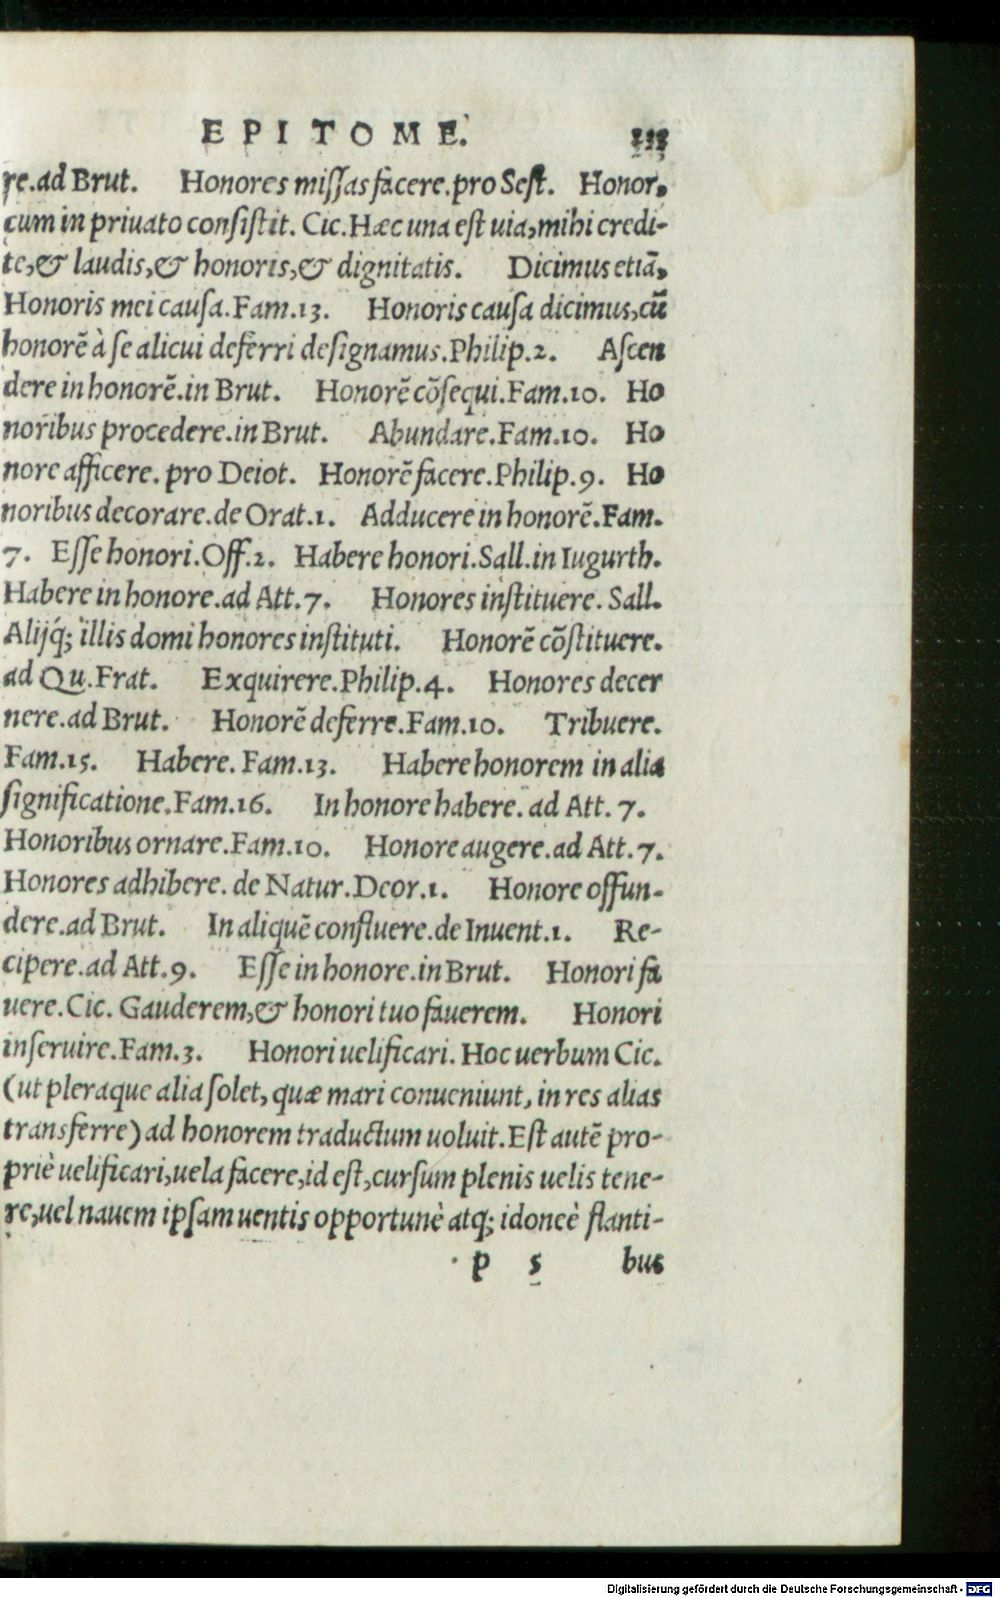 EPITOME. 233
re.ad Brut. Honores missas facere.pro Sest. Honor,
cum in priuato consistit. Cic.Hæc una est uia,mihi credi-
te,& laudis,& honoris,& dignitatis. Dicimus etiã,
Honoris mei causa.Fam.13. Honoris causa dicimus,cũ
honorẽ à se alicui deferri designamus.Philip.2. Ascen
dere in honorẽ.in Brut. Honorẽ cõsequi.Fam.10. Ho
noribus procedere.in Brut. Abundare.Fam.10. Ho
nore afficere. pro Deiot. Honorẽ facere.Philip.9. Ho
noribus decorare.de Orat.1. Adducere in honorẽ.Fam.
7. Esse honori.Off.2. Habere honori.Sall.in Iugurth.
Habere in honore.ad Att.7. Honores instituere. Sall.
Alijq́; illis domi honores instituti. Honorẽ cõstituere.
ad Qu.Frat. Exquirere.Philip.4. Honores decer
nere.ad Brut. Honorẽ deferre.Fam.10. Tribuere.
Fam.15. Habere. Fam.13. Habere honorem in alia
significatione.Fam.16. In honore habere. ad Att. 7.
Honoribus ornare.Fam.10. Honore augere.ad Att.7.
Honores adhibere. de Natur.Deor.1. Honore offun-
dere.ad Brut. In aliquẽ confluere.de Inuent.1. Re-
cipere.ad Att.9. Esse in honore.in Brut. Honori fa
uere.Cic. Gauderem,& honori tuo fauerem. Honori
inseruire.Fam.3. Honori uelificari. Hoc uerbum Cic.
(ut pleraque alia solet, quæ mari conueniunt, in res alias
transferre) ad honorem traductum uoluit.Est autẽ pro-
priè uelificari,uela facere,id est,cursum plenis uelis tene-
re,uel nauem ipsam uentis opportunè atq; idoneè flanti-
p 5 bus
Digitalisierung gefördert durch die Deutsche Forschungsgemeinschaft - DFG